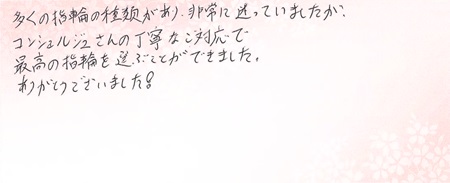 多くの指輪の種類があり、非常に迷っていましたが、
コンシェルジュさんの丁寧なご対応で
最高の指輪を選ぶことができました。
ありがとうございました!